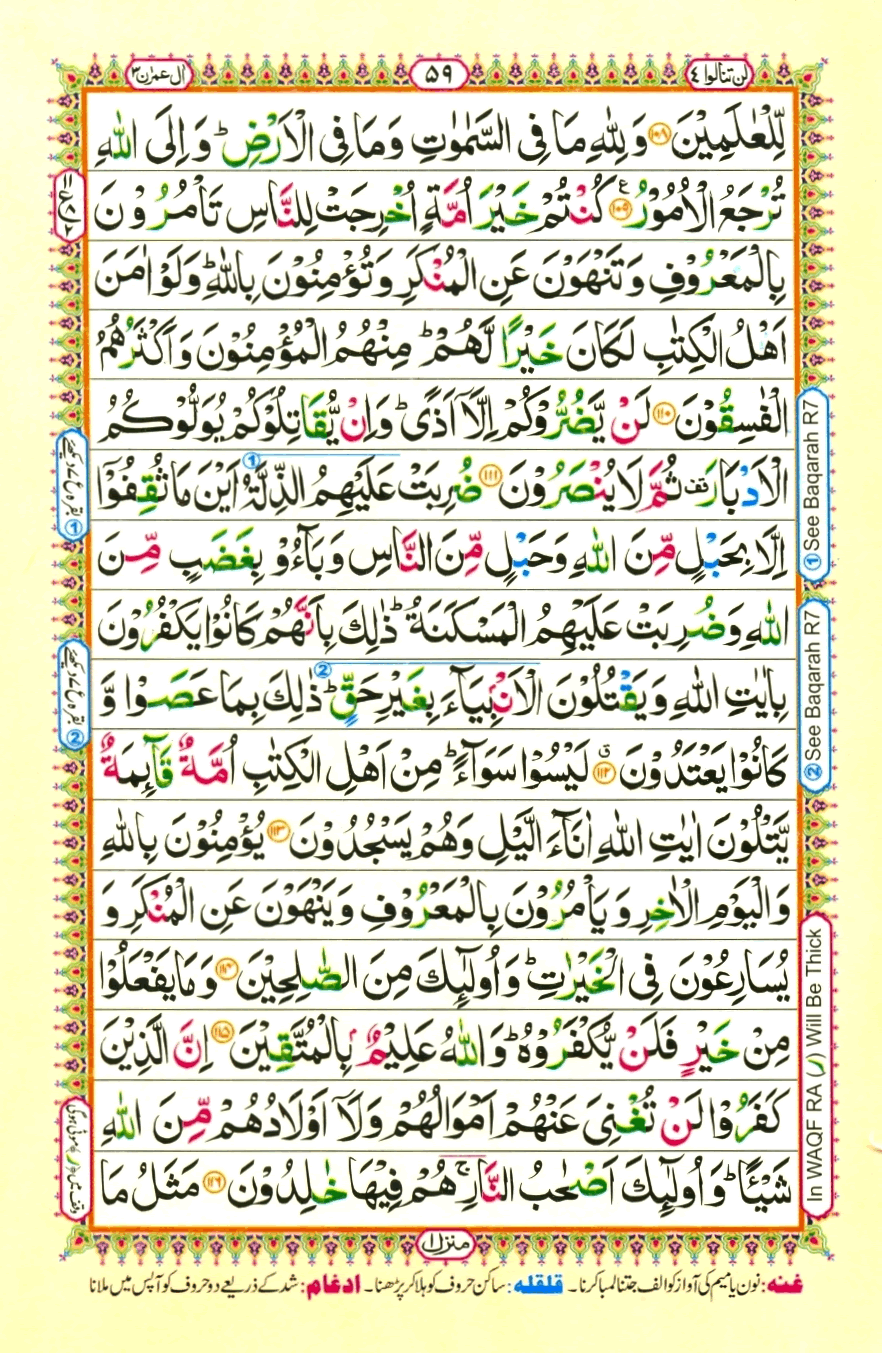 لن تنالوا ٤
٥٩
اٰل عمرٰن ٣
لِّلْعٰلَمِيْنَ ﴿۱۰۸﴾ وَلِلّٰهِ مَا فِى السَّمٰوٰتِ وَمَا فِى الْاَرْضِ ؕ وَاِلَى اللّٰهِ
تُرْجَعُ الْاُمُوْرُ ﴿۱۰۹﴾ ع كُنْتُمْ خَيْرَ اُمَّةٍ اُخْرِجَتْ لِلنَّاسِ تَاْمُرُوْنَ
بِالْمَعْرُوْفِ وَتَنْهَوْنَ عَنِ الْمُنْكَرِ وَتُؤْمِنُوْنَ بِاللّٰهِ ؕ وَلَوْ اٰمَنَ
اَهْلُ الْكِتٰبِ لَكَانَ خَيْرًا لَّهُمْ ؕ مِنْهُمُ الْمُؤْمِنُوْنَ وَاَكْثَرُهُمُ
الْفٰسِقُوْنَ ﴿۱۱۰﴾ لَنْ يَّضُرُّوْكُمْ اِلَّاۤ اَذًى ؕ وَاِنْ يُّقَاتِلُوْكُمْ يُوَلُّوْكُمُ
الْاَدْبَارَ قف ثُمَّ لَا يُنْصَرُوْنَ ﴿۱۱۱﴾ ضُرِبَتْ عَلَيْهِمُ الذِّلَّةُ ① اَيْنَ مَا ثُقِفُوْۤا
اِلَّا بِحَبْلٍ مِّنَ اللّٰهِ وَحَبْلٍ مِّنَ النَّاسِ وَبَآءُوْ بِغَضَبٍ مِّنَ
اللّٰهِ وَضُرِبَتْ عَلَيْهِمُ الْمَسْكَنَةُ ؕ ذٰلِكَ بِاَنَّهُمْ كَانُوْا يَكْفُرُوْنَ
بِاٰيٰتِ اللّٰهِ وَيَقْتُلُوْنَ الْاَنْۢبِيَآءَ بِغَيْرِ حَقٍّ ؕ ② ذٰلِكَ بِمَا عَصَوْا وَّ
كَانُوْا يَعْتَدُوْنَ ﴿۱۱۲﴾ ق لَيْسُوْا سَوَآءً ؕ مِنْ اَهْلِ الْكِتٰبِ اُمَّةٌ قَآئِمَةٌ
يَّتْلُوْنَ اٰيٰتِ اللّٰهِ اٰنَآءَ الَّيْلِ وَهُمْ يَسْجُدُوْنَ ﴿۱۱۳﴾ يُؤْمِنُوْنَ بِاللّٰهِ
وَالْيَوْمِ الْاٰخِرِ وَيَاْمُرُوْنَ بِالْمَعْرُوْفِ وَيَنْهَوْنَ عَنِ الْمُنْكَرِ وَ
يُسَارِعُوْنَ فِى الْخَيْرٰتِ ؕ وَاُولٰٓئِكَ مِنَ الصّٰلِحِيْنَ ﴿۱۱۴﴾ وَمَا يَفْعَلُوْا
مِنْ خَيْرٍ فَلَنْ يُّكْفَرُوْهُ ؕ وَاللّٰهُ عَلِيْمٌۢ بِالْمُتَّقِيْنَ ﴿۱۱۵﴾ اِنَّ الَّذِيْنَ
كَفَرُوْا لَنْ تُغْنِىَ عَنْهُمْ اَمْوَالُهُمْ وَلَاۤ اَوْلَادُهُمْ مِّنَ اللّٰهِ
شَيْـًٔا ؕ وَاُولٰٓئِكَ اَصْحٰبُ النَّارِ ۚ هُمْ فِيْهَا خٰلِدُوْنَ ﴿۱۱۶﴾ مَثَلُ مَا
① See Baqarah R7
② See Baqarah R7
In WAQF RA (ر) Will Be Thick
بقرہ ع۷ دیکھئے ①
بقرہ ع۷ دیکھئے ②
منزل ۱
غنه: نون یا میم کی آواز کو الف جتنا لمبا کرنا۔ قلقله: ساکن حروف کو ہلا کر پڑھنا۔ ادغام: شد کے ذریعے دو حروف کو آپس میں ملانا